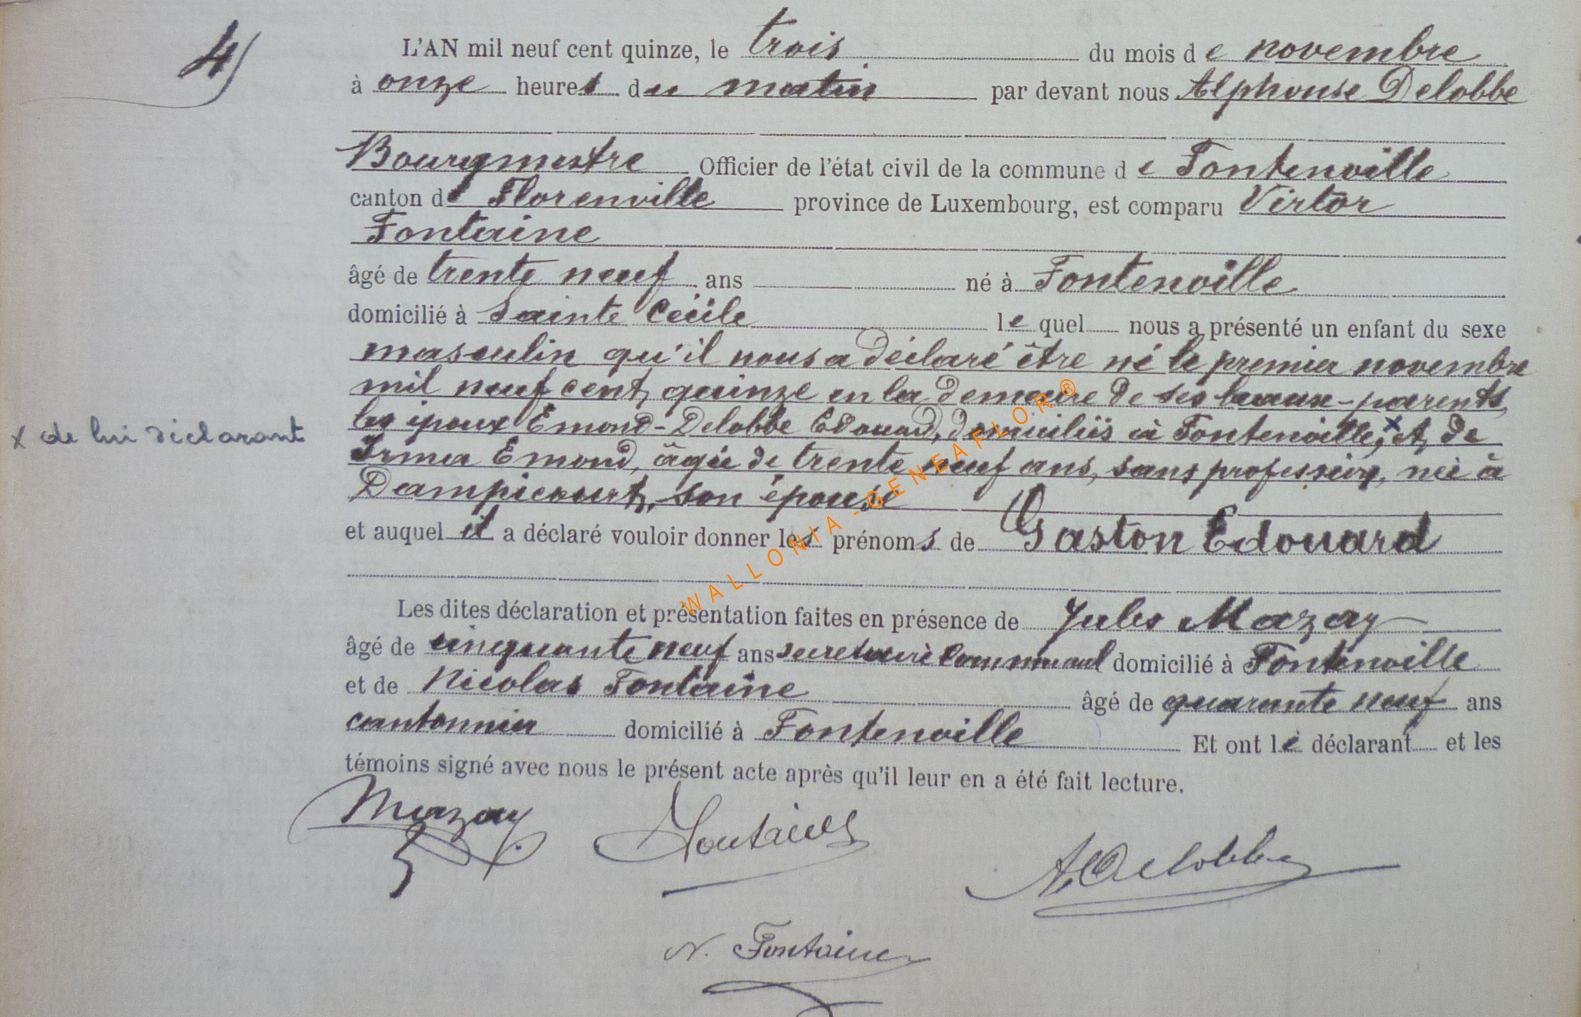 4)
L'AN mil neuf cent quinze, le trois du mois de novembre
à onze heures du matin par devant nous Alphonse Delobbe
Bourgmestre Officier de l'état civil de la commune de Fontenoille
canton de Florenville province de Luxembourg, est comparu Victor
Fontaine
âgé de trente neuf ans né à Fontenoille
domicilié à Sainte Cécile lequel nous a présenté un enfant du sexe
masculin qu'il nous a déclaré être né le premier novembre
mil neuf cent quinze en la demeure de ses beaux-parents,
les époux Emond-Delobbe Edouard, domiciliés à Fontenoille, x et de
x de lui déclarant
Irma Emond, âgée de trente neuf ans, sans profession, née à
Dampicourt, son épouse
et auquel il a déclaré vouloir donner les prénoms de Gaston Edouard
Les dites déclaration et présentation faites en présence de Jules Mazay
âgé de cinquante neuf ans secretaire communal domicilié à Fontenoille
et de Nicolas Fontaine âgé de quarante neuf ans
cantonnier domicilié à Fontenoille Et ont le déclarant et les
témoins signé avec nous le présent acte après qu'il leur en a été fait lecture.
Mazay Fontaine A. Delobbe
N. Fontaine
WALLONIA - GENEAFLOR®